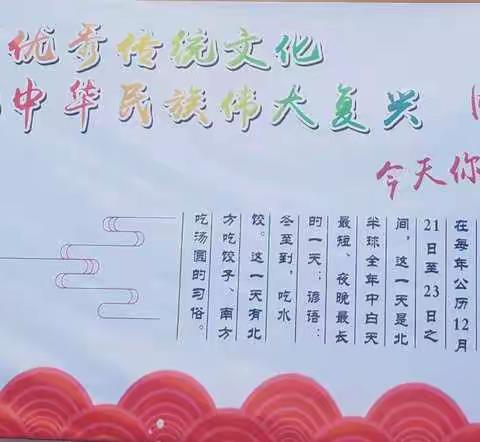 优秀传统文化
中华民族伟大复兴
今天你
在每年公历12月
21日至23日之
间，这一天是北
半球全年中白天
最短、夜晚最长
的一天；谚语：
冬至到，吃水
饺。这一天有北
方吃饺子、南方
吃汤圆的习俗。